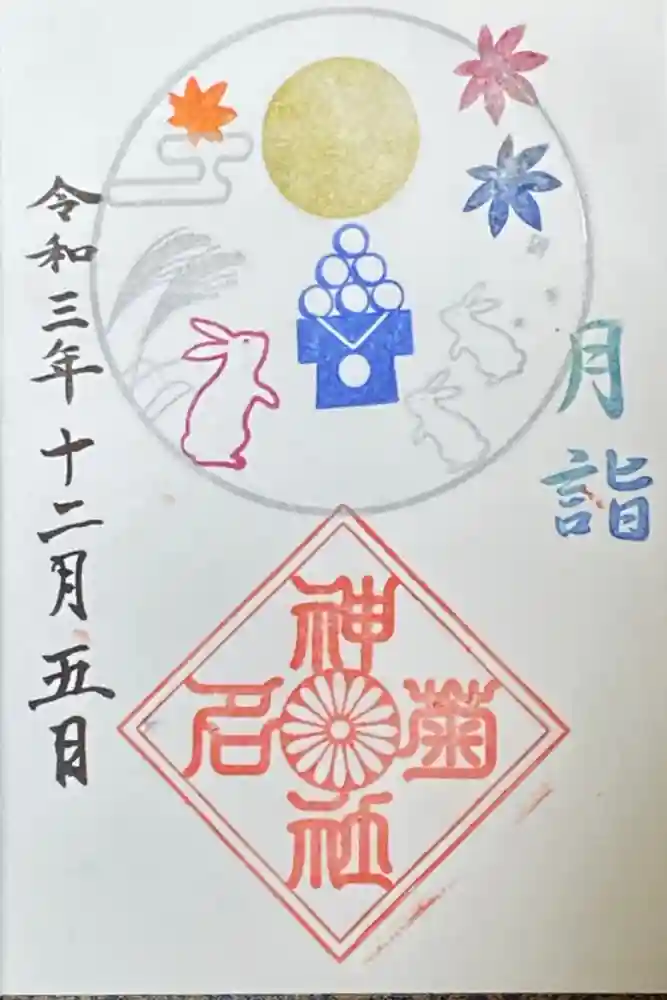 月詣
菊名
神社
令和三年十二月五日